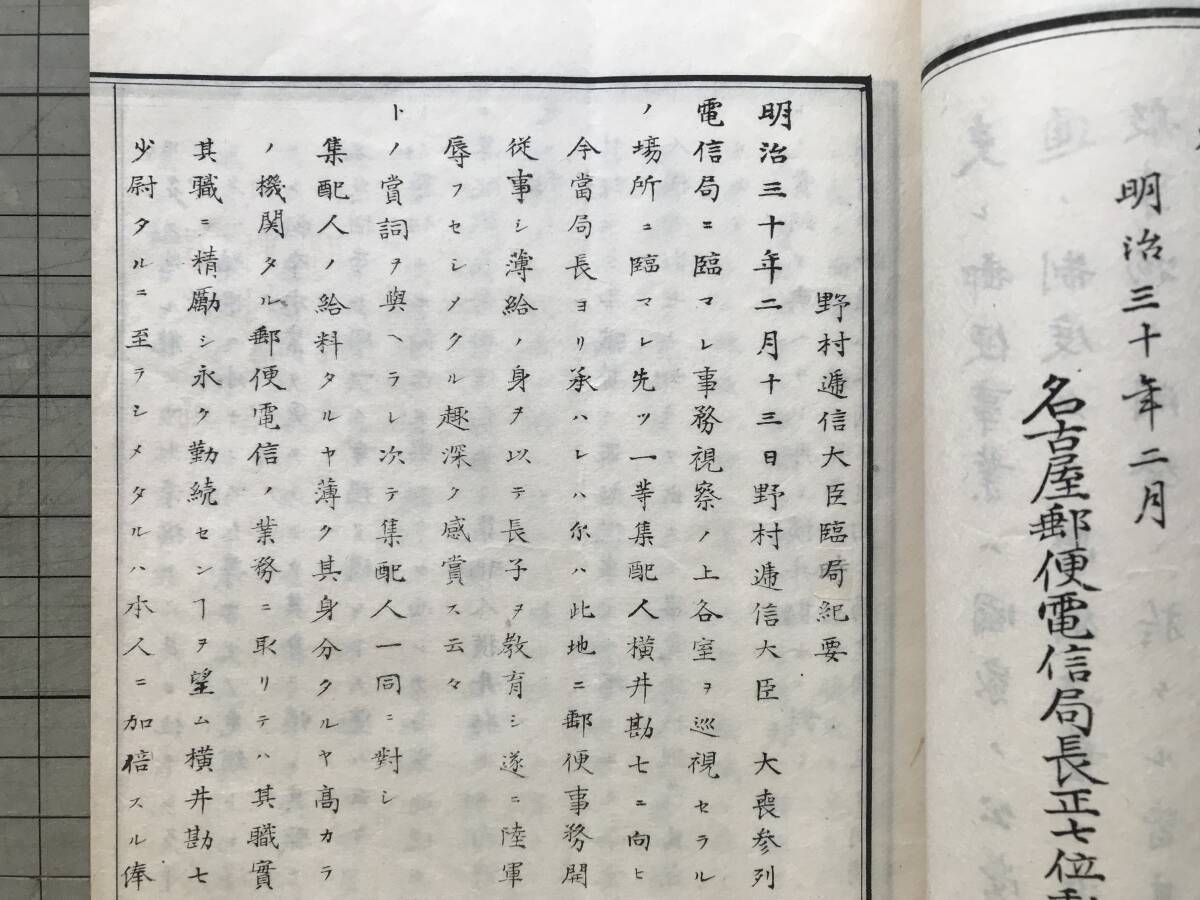 明治三十年二月
名古屋郵便電信局長正七位
野村遞信大臣臨局紀要
明治三十年二月十三日野村遞信大臣 大喪参列
電信局ニ臨マレ事務視察ノ上各室ヲ巡視セラル
ノ場所ニ臨マレ先ツ一等集配人横井勘七ニ向ヒ
今當局長ヨリ承ハレハ尓ハ此地ニ郵便事務開
従事シ薄給ノ身ヲ以テ長子ヲ教育シ遂ニ陸軍
辱フセシメタル趣深ク感賞ス云々
トノ賞詞ヲ與ヘラレ次テ集配人一同ニ對シ
集配人ノ給料タルヤ薄ク其身分タルヤ高カラ
ノ機関タル郵便電信ノ業務ニ取リテハ其職實
其職ニ精勵シ永ク勤続センヿヲ望ム横井勘七
少尉タルニ至ラシメタルハ本人ニ加倍スル俸